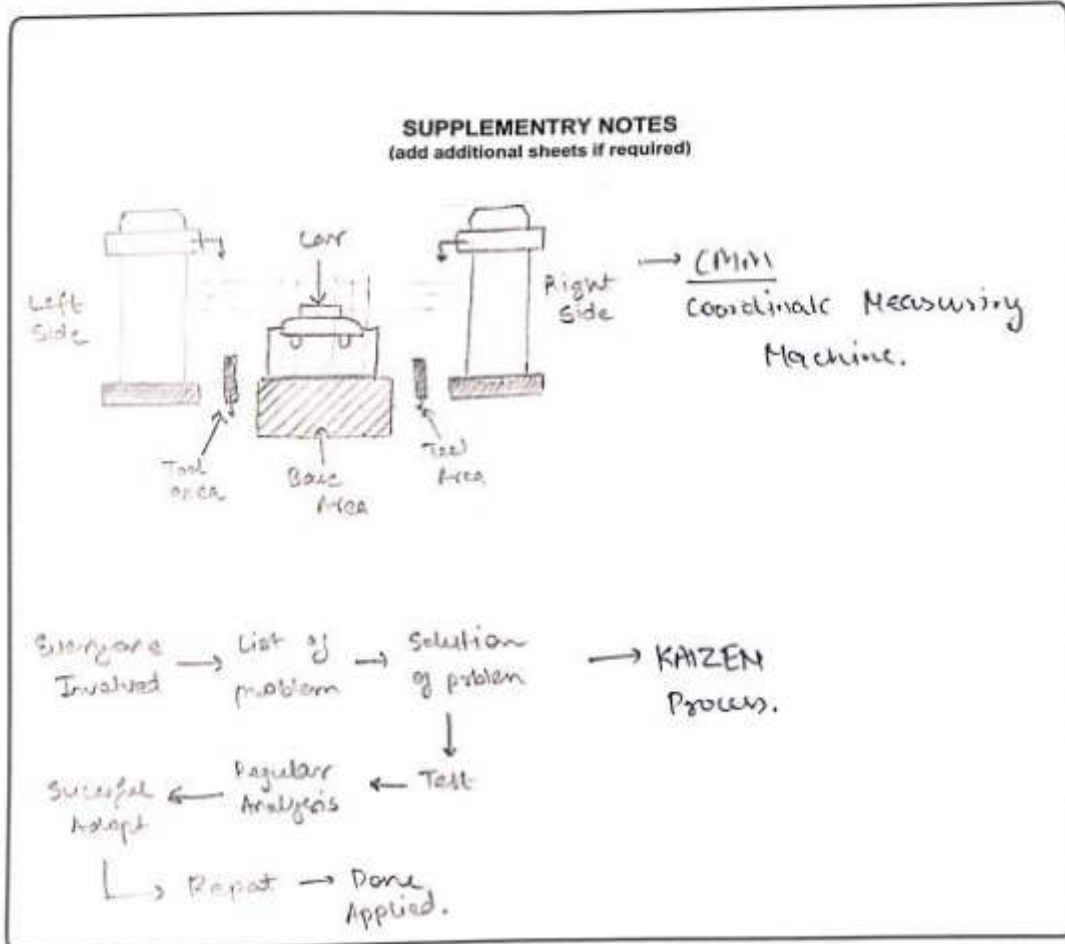 SUPPLEMENTRY NOTES
(add additional sheets if required)
Left
Side
Carr
Right
Side
→ CMM
Coordinate Measuring
Machine.
Tool
area
Base
Area
Tool
Area
Everyone
Involved
→ List of
problem
→ Solution
of problem
→ KAIZEN
Process.
Test
← Regular
Analysis
← Sucessful
Adopt
→ Repat → Done
Applied.